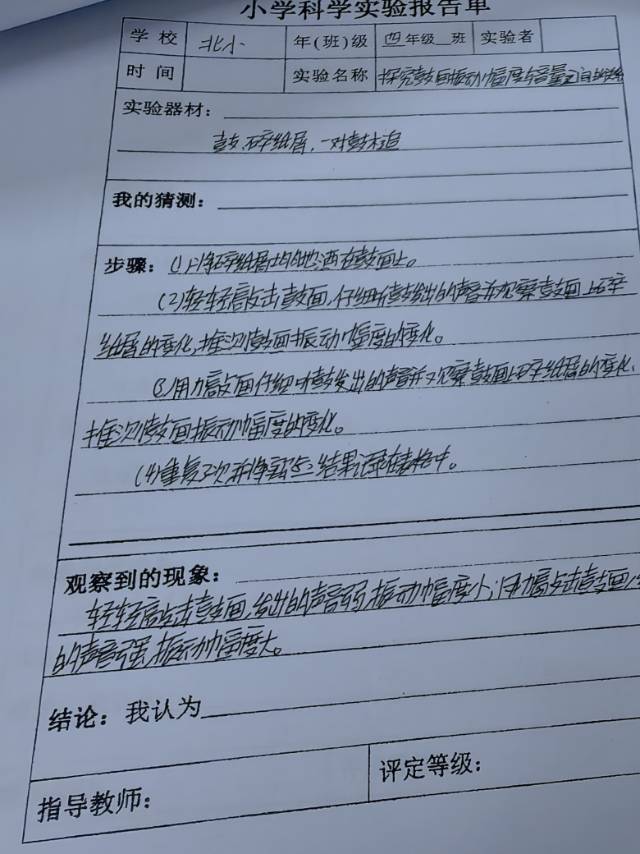 小学科学实验报告单
学校 北小 年(班)级 四年级 班 实验者
时间 实验名称 探究鼓面振动幅度与音量之间的
实验器材:
鼓、碎纸屑、一对鼓槌
我的猜测:
步骤: (1)将碎纸屑均匀地洒在鼓面上。
(2)轻轻敲击鼓面,仔细听鼓发出的声音并观察鼓面上碎
纸屑的变化,推测鼓面振动幅度的变化。
(3)用力敲鼓面仔细听鼓发出的声音并观察鼓面上碎纸屑的变化,
推测鼓面振动幅度的变化。
(4)重复3次并将实验结果记录在表格中。
观察到的现象:
轻轻敲击鼓面,发出的声音弱,振动幅度小;用力敲击鼓面,
的声音强,振动幅度大。
结论:我认为
指导教师: 评定等级: